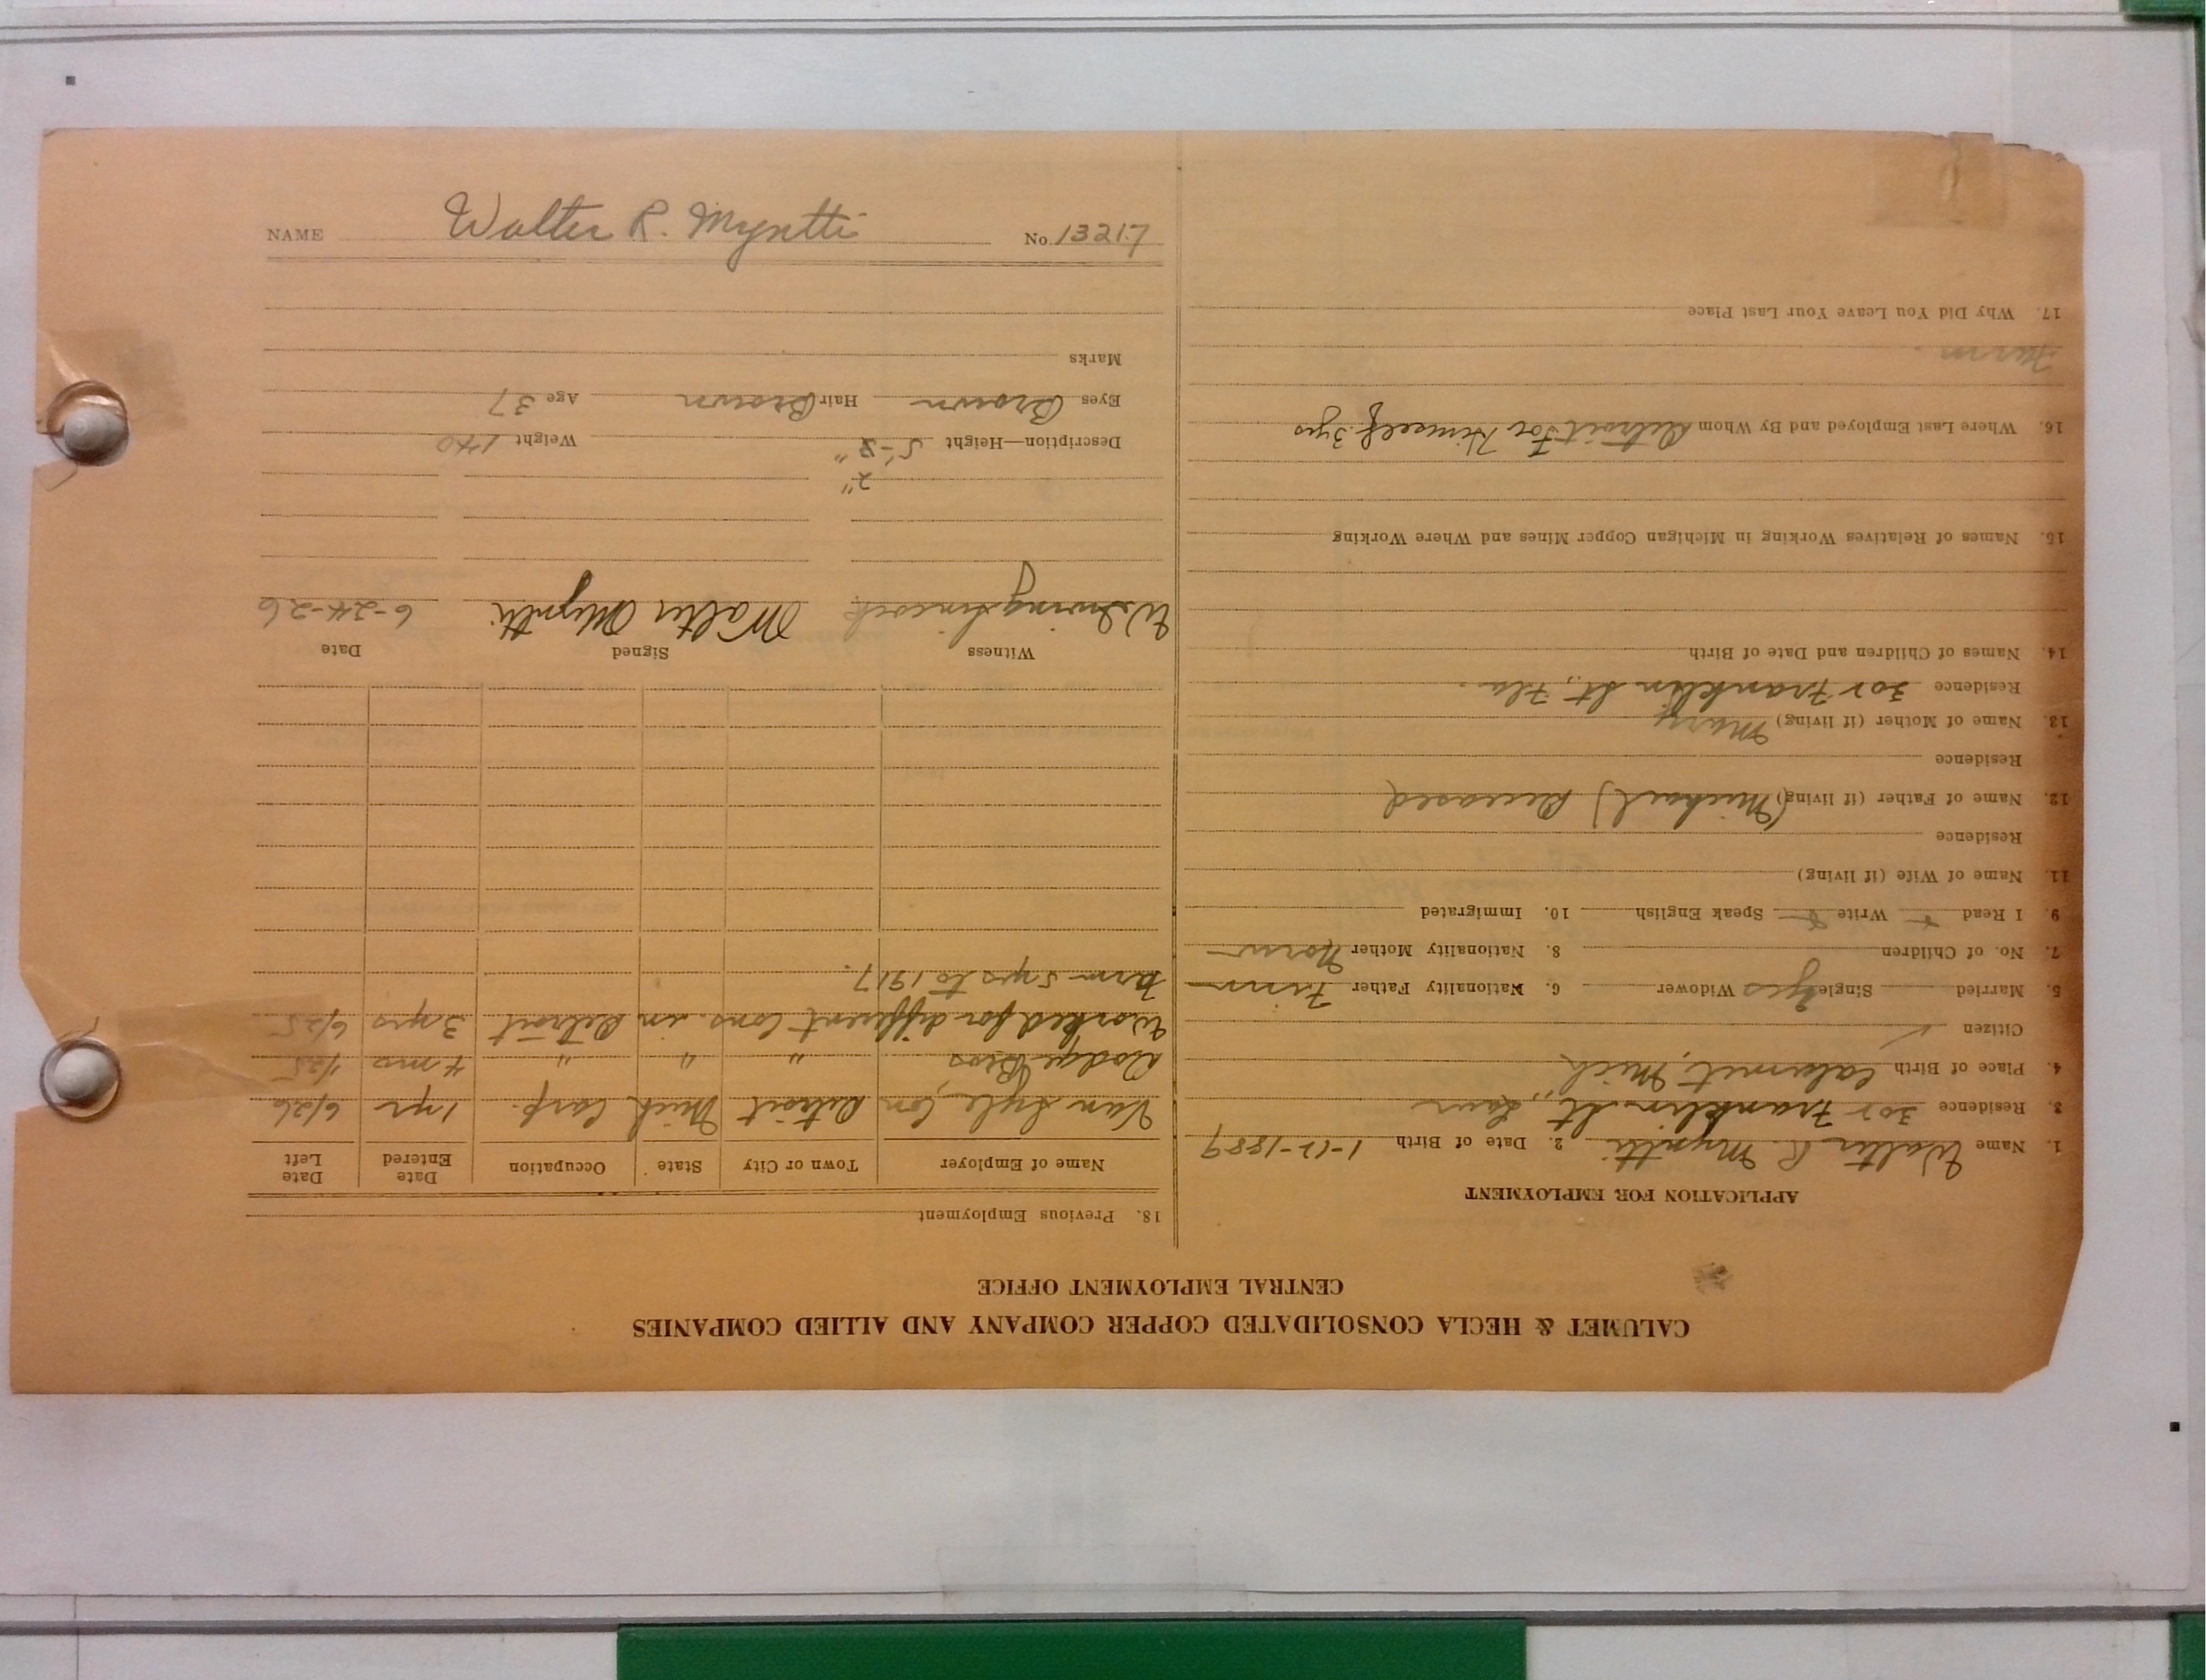 NAME Walter R. Myntti No. 13217
CALUMET & HECLA CONSOLIDATED COPPER COMPANY AND ALLIED COMPANIES
CENTRAL EMPLOYMENT OFFICE
APPLICATION FOR EMPLOYMENT
1. Name Walter R. Myntti 2. Date of Birth 1-12-1889
3. Residence 301 Franklin St., Laur
4. Place of Birth Calumet, Mich
Citizen ✓
5. Married Single yes Widower 6. Nationality Father Finn
7. No. of Children 8. Nationality Mother Norw
9. I Read Write Speak English 10. Immigrated
11. Name of Wife (if living)
Residence
12. Name of Father (if living) (Michael) Deceased
Residence
13. Name of Mother (if living) Mary
Residence 301 Franklin St., Fla.
14. Names of Children and Date of Birth
15. Names of Relatives Working in Michigan Copper Mines and Where Working
16. Where Last Employed and By Whom Detroit For Himself 3 yrs
Farm.
17. Why Did You Leave Your Last Place
18. Previous Employment
Name of Employer Town or City State Occupation Date Entered Date Left
Van Syle, Con Detroit Mich Carp. 1 yr 6/26
Dodge Bros " " " 4 mo 1/25
Worked for different Cons. in Detroit 3 yrs 6/25
Farm 5 yrs to 1917.
Witness Signed Date
Walter Myntti 6-24-26
2"
Description—Height 5'-8" Weight 140
Eyes Brown Hair Brown Age 37
Marks